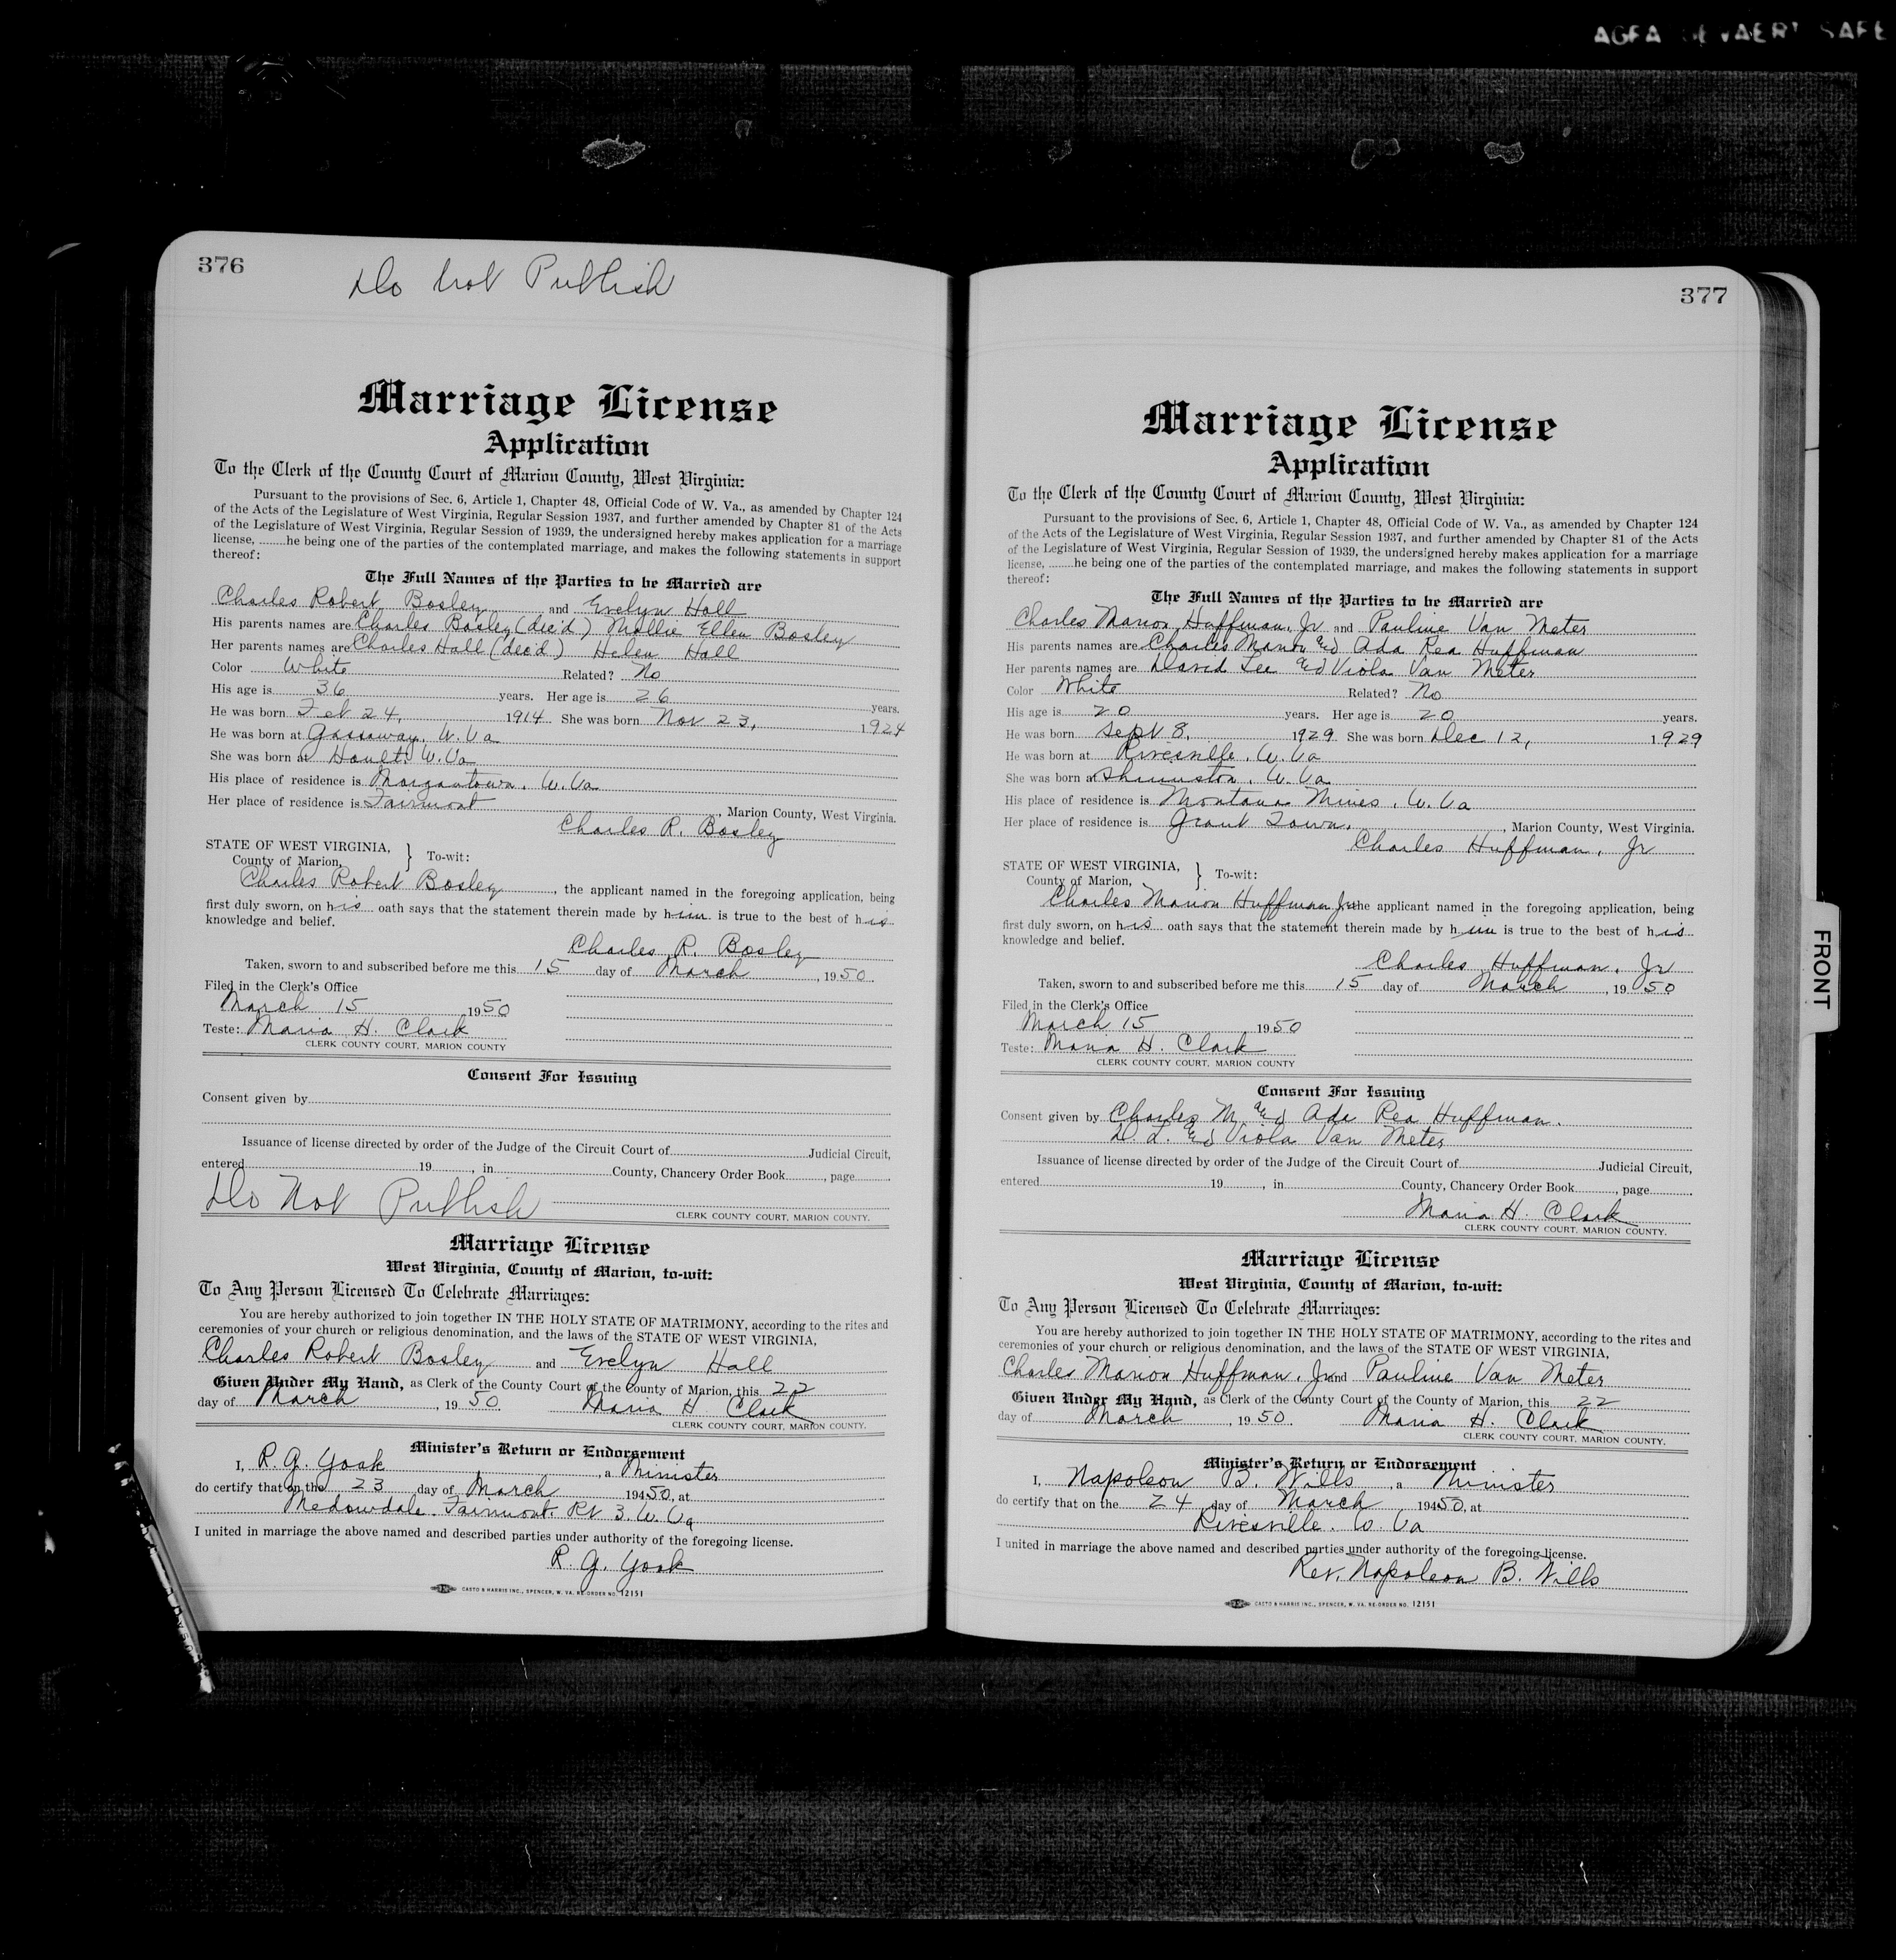 AGFA GEVAERT SAFE
376
Do Not Publish
Marriage License
Application
To the Clerk of the County Court of Marion County, West Virginia:
Pursuant to the provisions of Sec. 6, Article 1, Chapter 48, Official Code of W. Va., as amended by Chapter 124
of the Acts of the Legislature of West Virginia, Regular Session 1937, and further amended by Chapter 81 of the Acts
of the Legislature of West Virginia, Regular Session of 1939, the undersigned hereby makes application for a marriage
license, ........he being one of the parties of the contemplated marriage, and makes the following statements in support
thereof:
The Full Names of the Parties to be Married are
Charles Robert Bosley and Evelyn Hall
His parents names are Charles Bosley (dec'd) Mollie Ellen Bosley
Her parents names are Charles Hall (dec'd) Helen Hall
Color White Related? No
His age is 36 years. Her age is 26 years.
He was born Feb 24, 1914 She was born Nov 23, 1924
He was born at Gassaway, W. Va
She was born at Hoult, W. Va
His place of residence is Morgantown, W. Va
Her place of residence is Fairmont, Marion County, West Virginia.
Charles R. Bosley
STATE OF WEST VIRGINIA,
County of Marion, } To-wit:
Charles Robert Bosley, the applicant named in the foregoing application, being
first duly sworn, on his oath says that the statement therein made by him is true to the best of his
knowledge and belief.
Charles R. Bosley
Taken, sworn to and subscribed before me this 15 day of March, 1950.
Filed in the Clerk's Office
March 15 1950
Teste: Maria H. Clark
CLERK COUNTY COURT, MARION COUNTY
Consent For Issuing
Consent given by
Issuance of license directed by order of the Judge of the Circuit Court of Judicial Circuit,
entered 19, in County, Chancery Order Book, page
Do Not Publish
CLERK COUNTY COURT, MARION COUNTY.
Marriage License
West Virginia, County of Marion, to-wit:
To Any Person Licensed To Celebrate Marriages:
You are hereby authorized to join together IN THE HOLY STATE OF MATRIMONY, according to the rites and
ceremonies of your church or religious denomination, and the laws of the STATE OF WEST VIRGINIA,
Charles Robert Bosley and Evelyn Hall
Given Under My Hand, as Clerk of the County Court of the County of Marion, this 22
day of March, 1950. Maria H. Clark
CLERK COUNTY COURT, MARION COUNTY.
Minister's Return or Endorsement
I, R. G. Yoak, a Minister
do certify that on the 23 day of March 19450, at
Medowdale. Fairmont. Rt 3. W. Va
I united in marriage the above named and described parties under authority of the foregoing license.
R. G. Yoak
CASTO & HARRIS INC., SPENCER, W. VA. RE-ORDER NO. 12151
377
Marriage License
Application
To the Clerk of the County Court of Marion County, West Virginia:
Pursuant to the provisions of Sec. 6, Article 1, Chapter 48, Official Code of W. Va., as amended by Chapter 124
of the Acts of the Legislature of West Virginia, Regular Session 1937, and further amended by Chapter 81 of the Acts
of the Legislature of West Virginia, Regular Session of 1939, the undersigned hereby makes application for a marriage
license, ........he being one of the parties of the contemplated marriage, and makes the following statements in support
thereof:
The Full Names of the Parties to be Married are
Charles Marion Huffman, Jr and Pauline Van Meter
His parents names are Charles Marion and Ada Rea Huffman
Her parents names are David Lee and Viola Van Meter
Color White Related? No
His age is 20 years. Her age is 20 years.
He was born Sept 8, 1929 She was born Dec 12, 1929
He was born at Rivesville, W. Va
She was born at Shinnston, W. Va
His place of residence is Montana Mines, W. Va
Her place of residence is Grant Town, Marion County, West Virginia.
Charles Huffman, Jr
STATE OF WEST VIRGINIA,
County of Marion, } To-wit:
Charles Marion Huffman Jr the applicant named in the foregoing application, being
first duly sworn, on his oath says that the statement therein made by him is true to the best of his
knowledge and belief.
Charles Huffman, Jr
Taken, sworn to and subscribed before me this 15 day of March, 1950
Filed in the Clerk's Office
March 15 1950
Teste: Maria H. Clark
CLERK COUNTY COURT, MARION COUNTY
Consent For Issuing
Consent given by Charles M and Ada Rea Huffman.
D. L. and Viola Van Meter
Issuance of license directed by order of the Judge of the Circuit Court of Judicial Circuit,
entered 19, in County, Chancery Order Book, page
Maria H. Clark
CLERK COUNTY COURT, MARION COUNTY.
Marriage License
West Virginia, County of Marion, to-wit:
To Any Person Licensed To Celebrate Marriages:
You are hereby authorized to join together IN THE HOLY STATE OF MATRIMONY, according to the rites and
ceremonies of your church or religious denomination, and the laws of the STATE OF WEST VIRGINIA,
Charles Marion Huffman, Jr and Pauline Van Meter
Given Under My Hand, as Clerk of the County Court of the County of Marion, this 22
day of March, 1950. Maria H. Clark
CLERK COUNTY COURT, MARION COUNTY.
Minister's Return or Endorsement
I, Napoleon B. Wills, a Minister
do certify that on the 24 day of March 19450, at
Rivesville. W. Va
I united in marriage the above named and described parties under authority of the foregoing license.
Rev. Napoleon B. Wills
CASTO & HARRIS INC., SPENCER, W. VA. RE-ORDER NO. 12151
FRONT